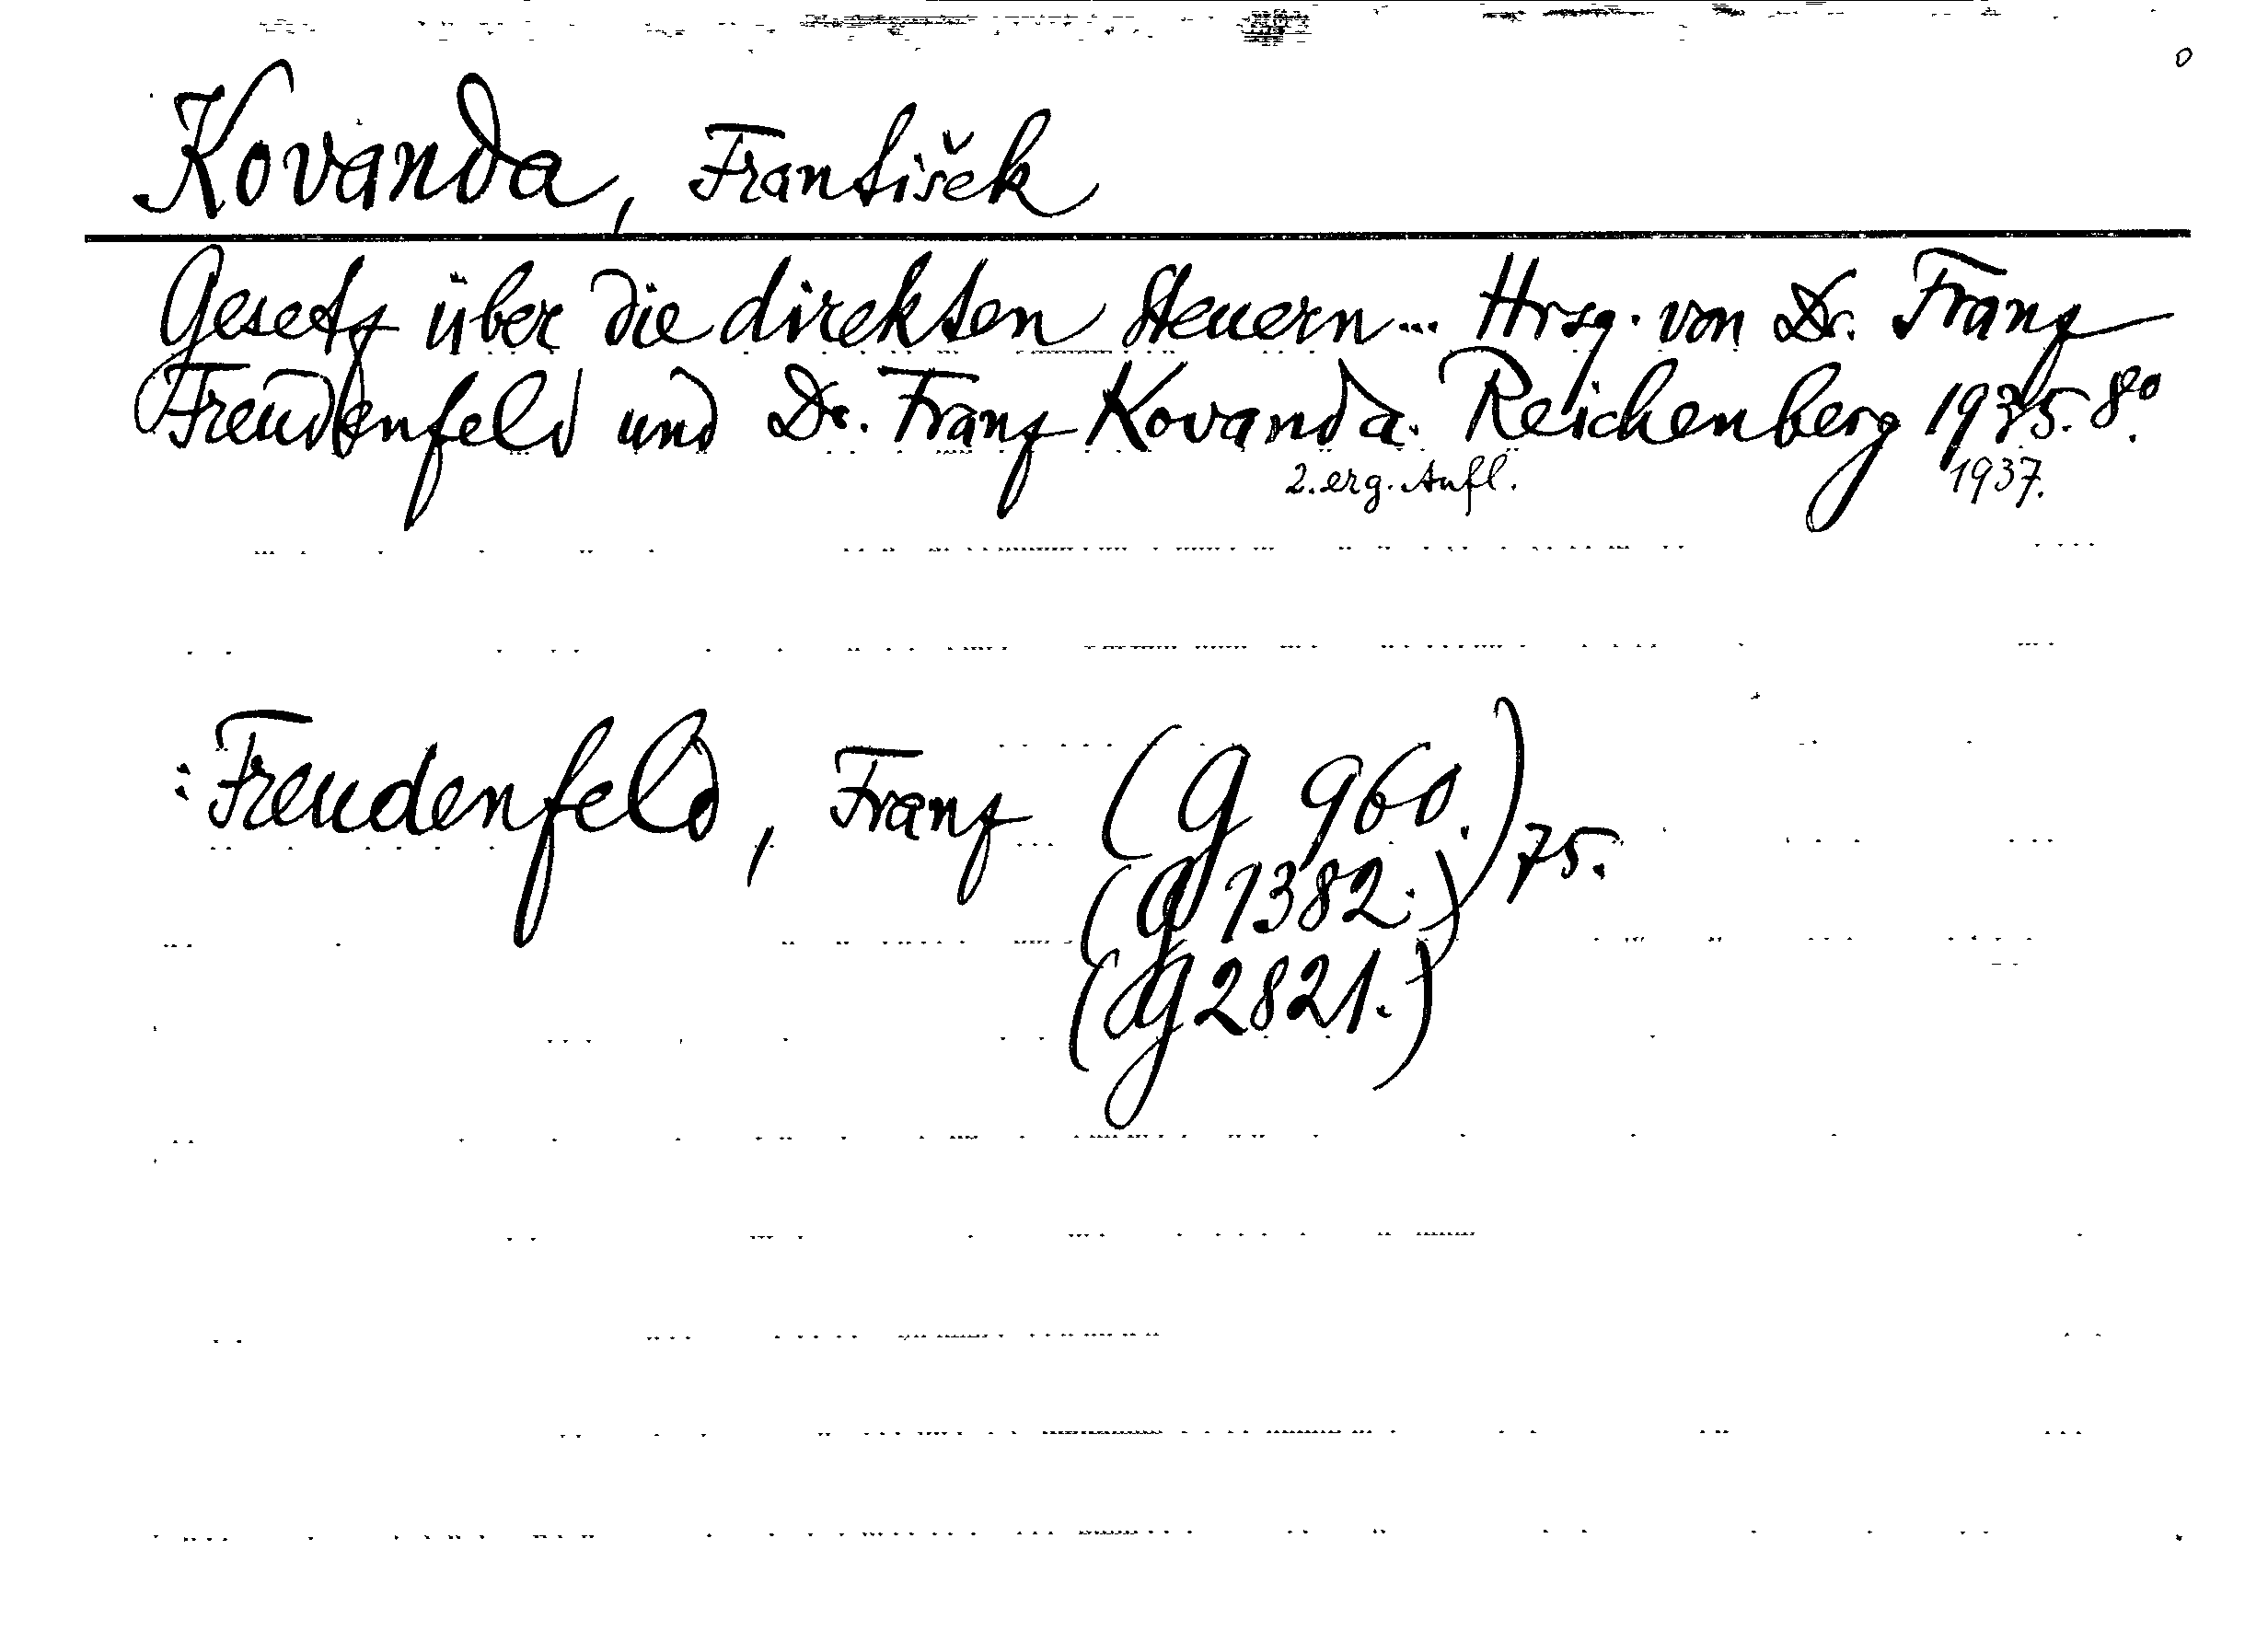 Kovanda, František
Gesetz über die direkten Steuern... Hrsg. von Dr. Franz
Freudenfeld und Dr. Franz Kovanda. Reichenberg 1935. 8°.
2. erg. Aufl. 1937.
: Freudenfeld, Franz (G 960.) 75.
(G 1382.)
(G 2821.)